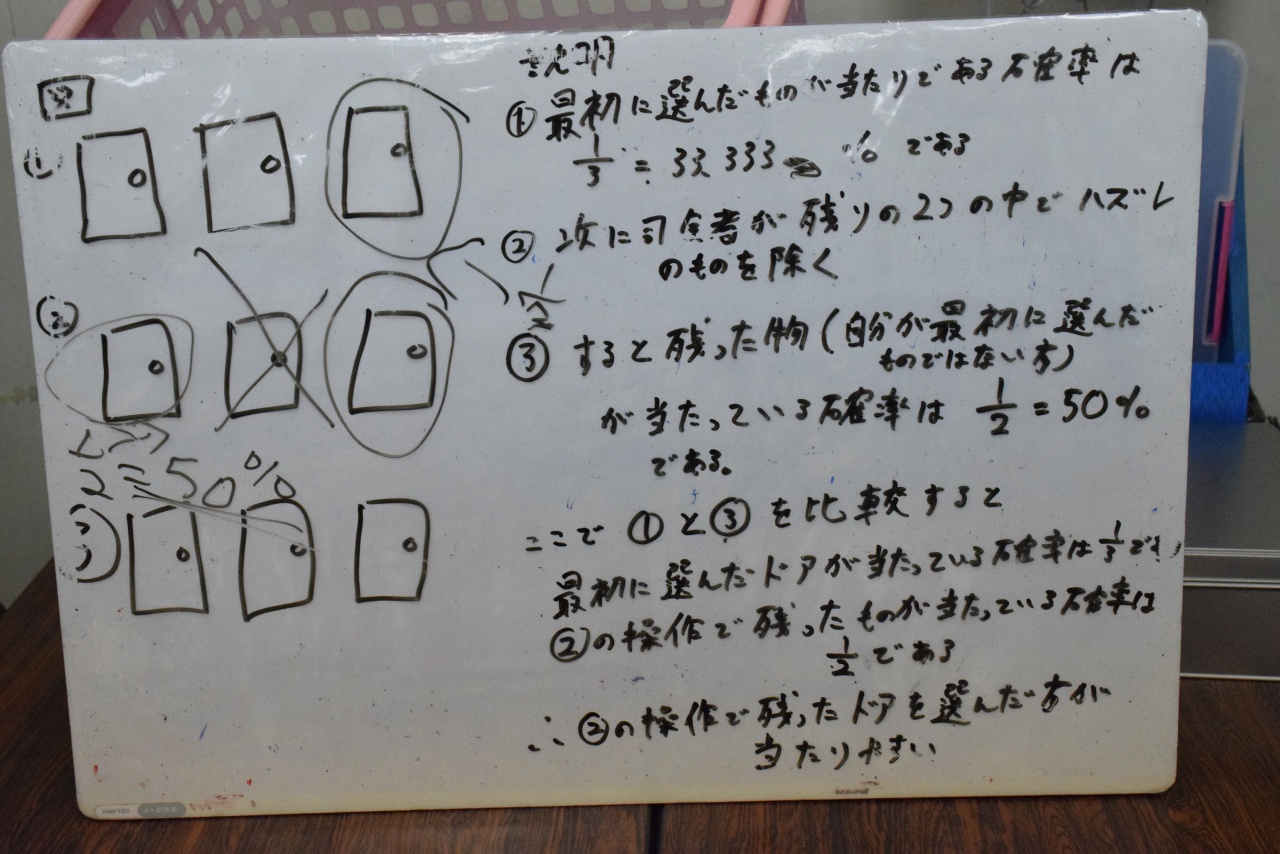 図
(1)
(2)
1/2
1/2 = 50%
(3)
説明
① 最初に選んだものが当たりである確率は
1/3 = 33.333 % である
② 次に司会者が残りの2つの中でハズレ
のものを除く
③ すると残った物(自分が最初に選んだ
ものではない方)
が当たっている確率は 1/2 = 50%
である。
ここで ① と ③ を比較すると
最初に選んだドアが当たっている確率は 1/3 で、
②の操作で残ったものが当たっている確率は
1/2 である
∴ ②の操作で残ったドアを選んだ方が
当たりやすい